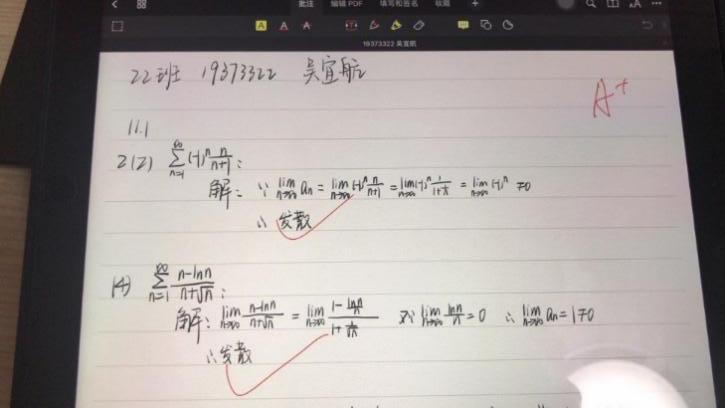 批注 编辑 PDF 填写和签名 收藏
19373322 吴宜航
22班 19373322 吴宜航
A+
11.1
2(2) ∑_{n=1}^{∞} (-1)^n n/(n+1) :
解: ∵ lim_{n→∞} a_n = lim_{n→∞} (-1)^n n/(n+1) = lim_{n→∞} (-1)^n 1/(1+1/n) = lim_{n→∞} (-1)^n ≠0
∴ 发散
(4) ∑_{n=1}^{∞} (n-lnn)/(n+√n) :
解: lim_{n→∞} (n-lnn)/(n+√n) = lim_{n→∞} (1-lnn/n)/(1+1/√n) 又∵ lim_{n→∞} lnn/n = 0 ∴ lim_{n→∞} a_n = 1≠0
∴发散